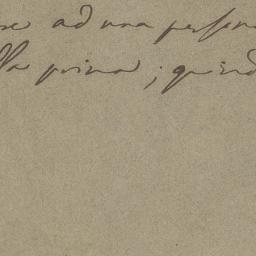 ad una person
lla prima; quind